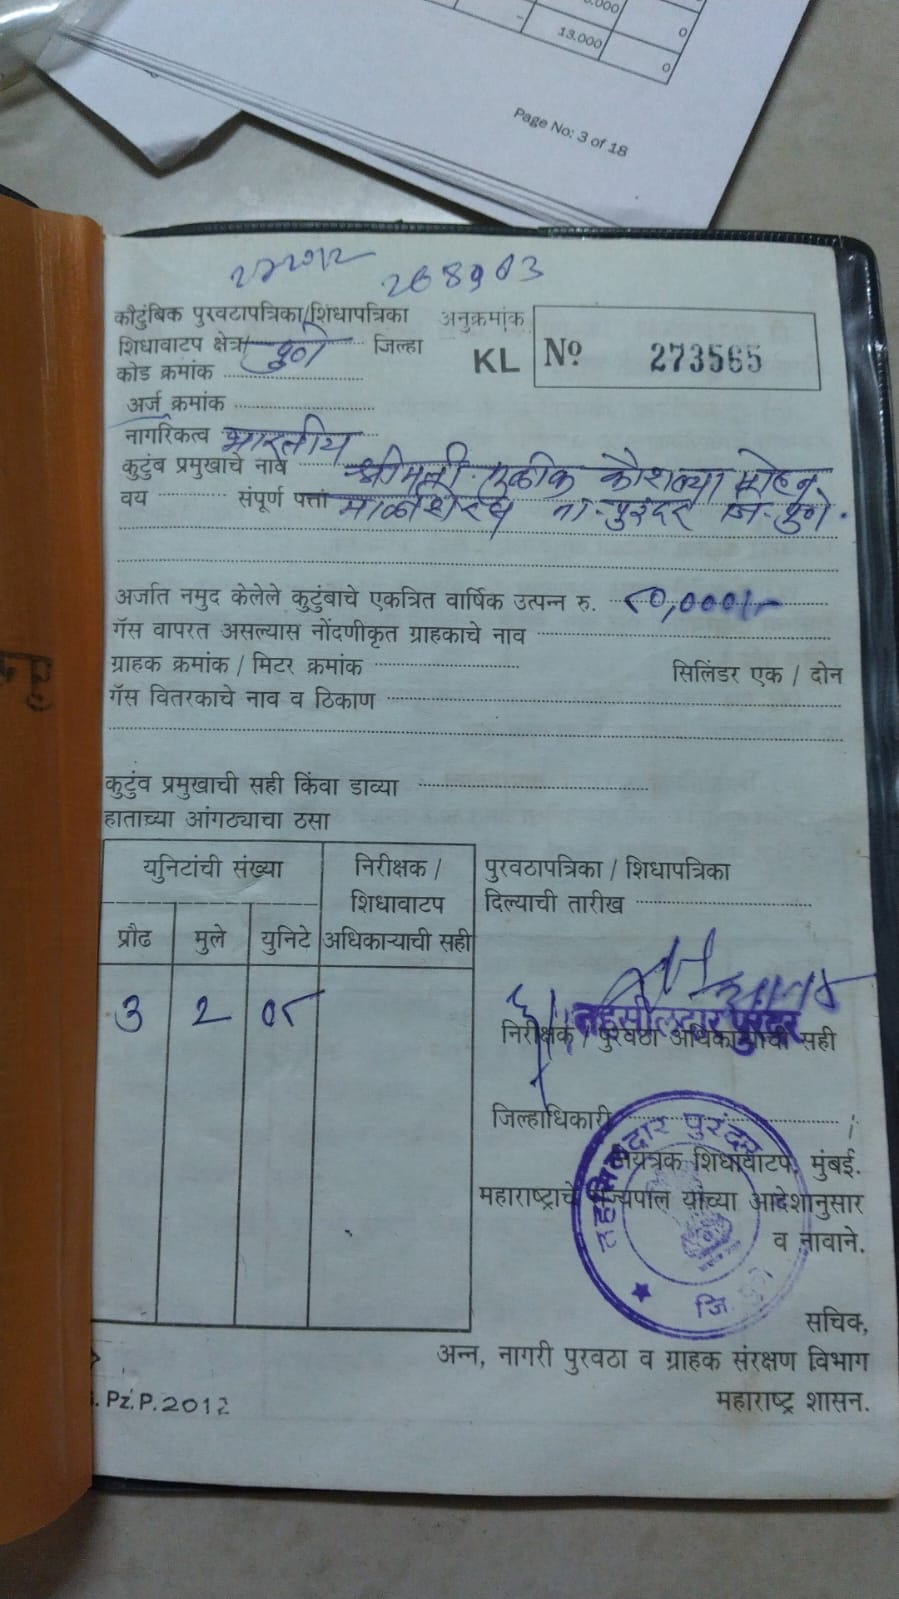 0.000
0
- 13.000
0
Page No: 3 of 18
268903
कौटुंबिक पुरवठापत्रिका/शिधापत्रिका अनुक्रमांक
शिधावाटप क्षेत्र/ पुणे जिल्हा KL Nº 273565
कोड क्रमांक
अर्ज क्रमांक
नागरिकत्व भारतीय
कुटुंब प्रमुखाचे नाव श्रीमती. कौशल्या मोहन
वय संपूर्ण पत्ता माळशिरस ता-पुरंदर जि-पुणे.
अर्जात नमुद केलेले कुटुंबाचे एकत्रित वार्षिक उत्पन्न रु.
गॅस वापरत असल्यास नोंदणीकृत ग्राहकाचे नाव
ग्राहक क्रमांक / मिटर क्रमांक सिलिंडर एक / दोन
गॅस वितरकाचे नाव व ठिकाण
कुटुंव प्रमुखाची सही किंवा डाव्या
हाताच्या आंगठ्याचा ठसा
युनिटांची संख्या निरीक्षक / पुरवठापत्रिका / शिधापत्रिका
शिधावाटप दिल्याची तारीख
प्रौढ मुले युनिटे अधिकाऱ्याची सही
3 2 05
तहसीलदार पुरंदर
निरीक्षक / पुरवठा अधिकाऱ्याची सही
जिल्हाधिकारी
तहसिलदार पुरंदर
नियंत्रक शिधावाटप, मुंबई.
महाराष्ट्राचे राज्यपाल यांच्या आदेशानुसार
व नावाने.
जि. पुणे
सचिक,
अन्न, नागरी पुरवठा व ग्राहक संरक्षण विभाग
Pz.P.2012 महाराष्ट्र शासन.